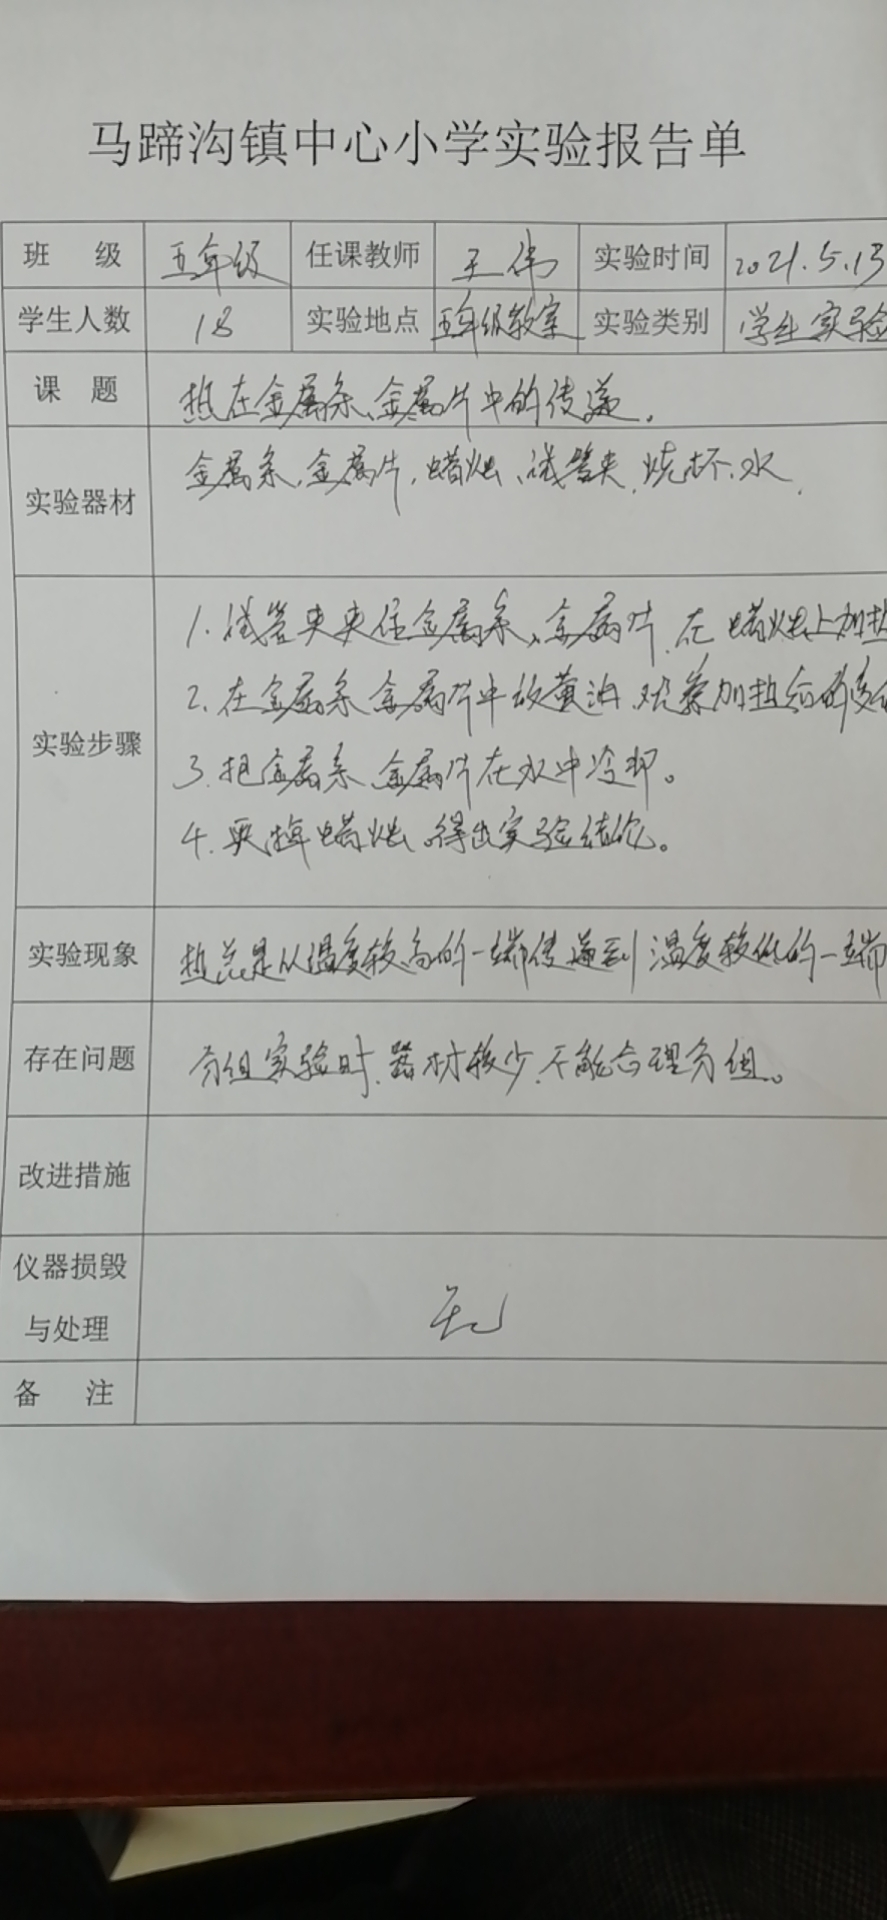 马蹄沟镇中心小学实验报告单
班 级 五年级 任课教师 王伟 实验时间 2021.5.13
学生人数 18 实验地点 五年级教室 实验类别 学生实验
课 题 热在金属条、金属片中的传递。
实验器材 金属条、金属片、蜡烛、试管夹、烧杯、水.
实验步骤
1. 试管夹夹住金属条、金属片,在蜡烛上加热
2. 在金属条、金属片中放黄油,观察加热后的变化
3. 把金属条、金属片在水中冷却。
4. 灭掉蜡烛,得出实验结论。
实验现象 热总是从温度较高的一端传递到温度较低的一端
存在问题 分组实验时,器材较少,不能合理分组。
改进措施
仪器损毁
与处理 无
备 注